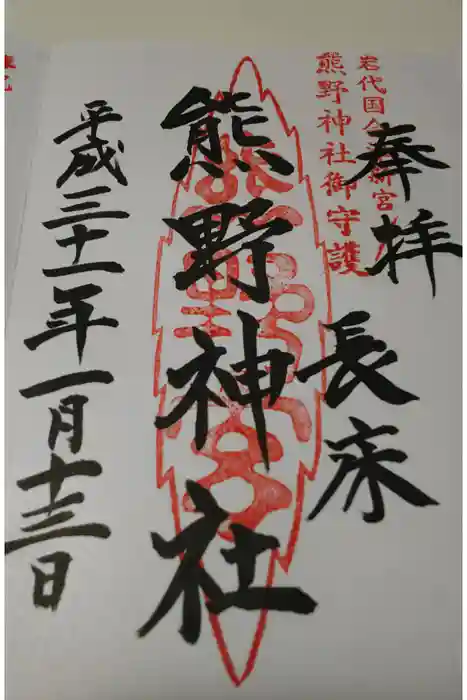 奉拝
長床
岩代国会津新宮
熊野神社御守護
熊野神社
平成三十一年一月十三日